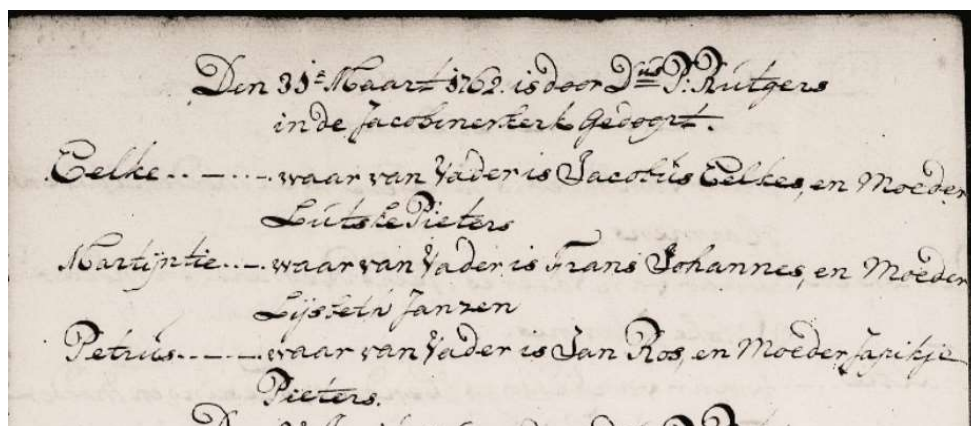 Den 31e Maart 1762. is door Dus P: Rútgers
in de Jacobinerkerk Gedoopt.
Eelke . . _ . . . waar van Vader is Jacobús Eelkes, en Moeder
Lútske Pieters
Martijntie . . . _ . waar van Vader is Frans Johannes, en Moeder
Janzen
Petrús . . _ . _ . waar van Vader is Jan Ros, en Moeder Japikje
Pieters.